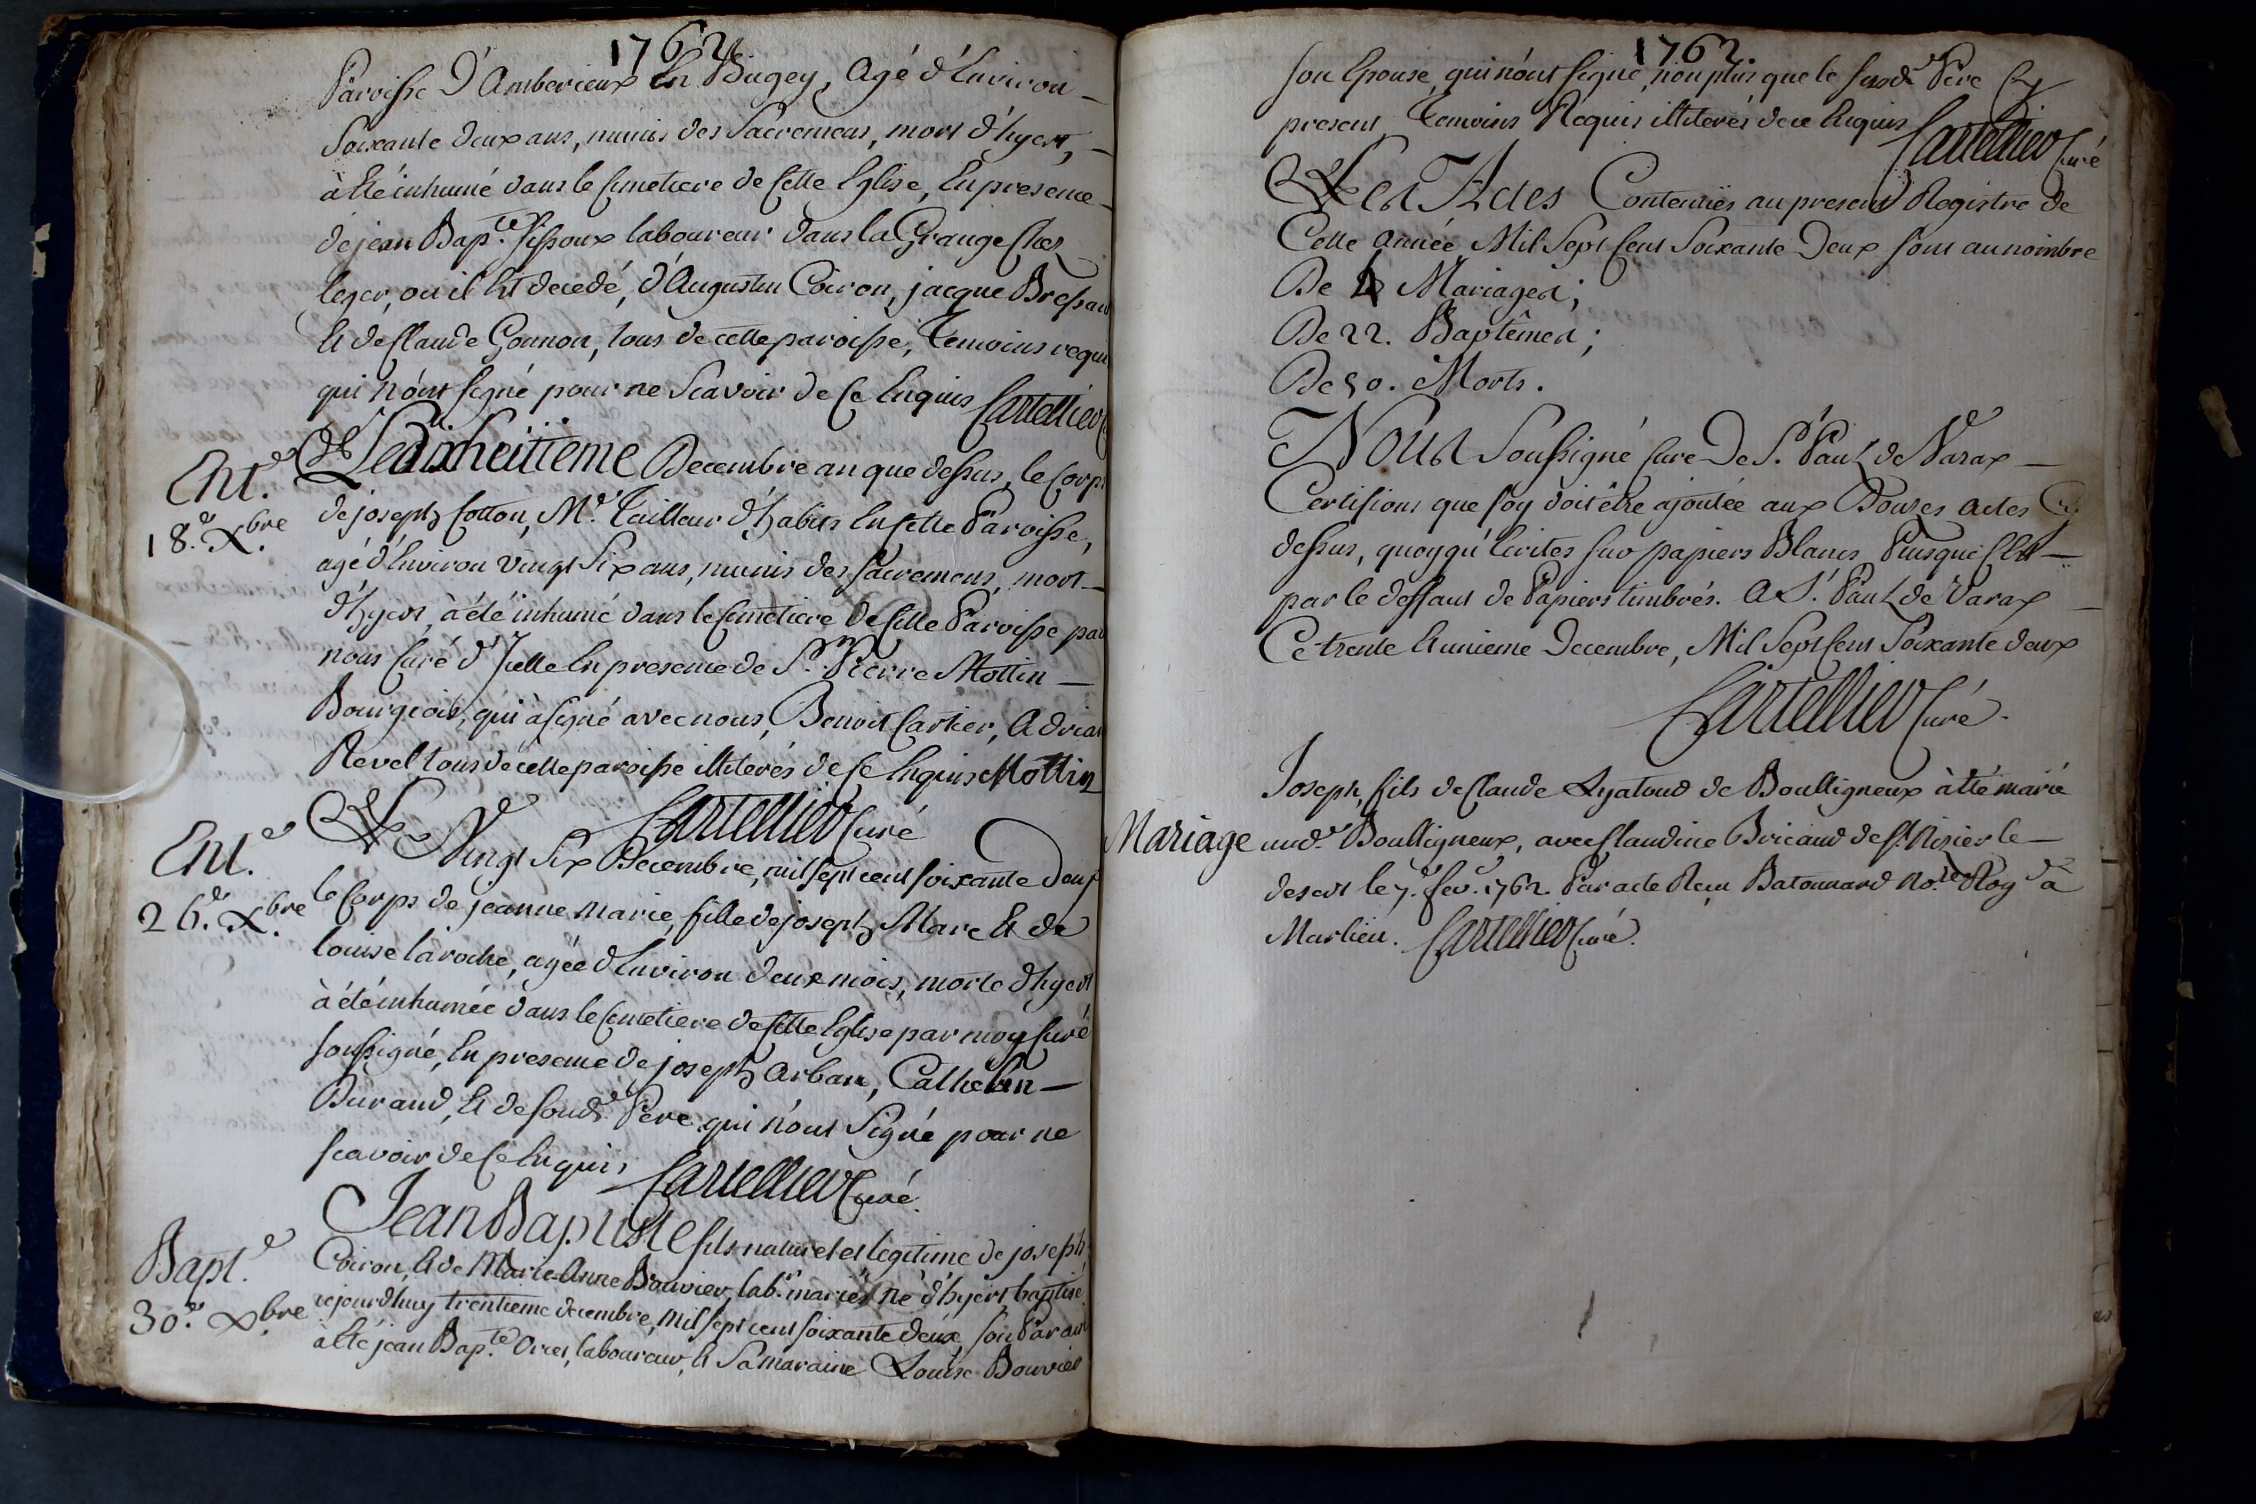 1762
Paroisse D'Amberieux En Bugey, Agé d'Environ
Soixante deux ans, munis des Sacremens, mort d'hyert,
à Eté inhumé dans le Cimetiere de Cette Eglise, En presence
de jean Bap.te laboureur dans la Grange Chez
leger, ou il Est decedé, d'Augustin Coiron, jacque Bressan
Et de Claude Gonnon, tous de cette paroisse, Temoins requi
qui n'ont signé pour ne Scavoir de Ce Enquis Cartellier
Ent.e
18.e Xbre
Le dixheuitieme Decembre an que dessus, le Corp
de joseph Cotton, M.e Tailleur d'habits En Cette Paroisse,
agé d'Environ vingt Six ans, munis des Sacremens, mort
d'hyert, à été inhumé dans le Cimetiere de Cette Paroisse par
nous Curé d'Icelle En presence de S.r Pierre Mottin
Bourgeois, qui à signé avec nous, Benoit Cartier, Adrian
Revel tous de cette paroisse illiterés de Ce Enquis Mottin
Cartellier Curé
Ent.e
26.e Xbre
Le Vingt Six Decembre, mil sept cent soixante Deux
le Corps de jeanne marie, fille de joseph Marc Et de
louise laroche, agée d'Environ deux mois, morte d'hyert
à été inhumée dans le Cimetiere de Cette Eglise par moy Curé
soussigné, En presence de joseph Arban, Cathelin
Durand, Et de soud.t Pere qui n'ont Signé pour ne
scavoir de Ce Enquis Cartellier Curé.
Bapt.e
30.e Xbre
Jean Baptiste fils naturel et legitime de joseph
Coiron, Et de Marie Anne Bouvier, lab.rs mariés né d'hyert baptisé
cejourdhuy trentieme decembre, mil sept cent soixante deux, son Parain
à Eté jean Bap.te laboureur, Et Sa maraine Louise Bouvier
1762.
son Epouse, qui n'ont signé, non plus que le susd. Pere Cy
present, Temoins Requis illiterés de ce Enquis
Cartellier Curé
Les Actes Contenües au present Registre de
Cette Année Mil Sept Cent Soixante Deux sont au nombre
De 4 Mariages;
De 22. Baptêmes;
De 50. Morts.
Nous Soussigné Cure De S.t Paul de Varax
Certifions que foy doit être ajoutée aux Douzes actes Cy
dessus, quoyqu'Ecrites sur papiers Blancs, Puisque C'est
par le deffaut de Papiers timbrés. A S.t Paul de Varax
Ce trente Et unieme Decembre, Mil Sept Cent Soixante deux
Cartellier Curé.
Joseph, fils de Claude Lyatoud de Boulligneux à Eté marié
Mariage aud.t Boulligneux, avec Claudine Bricaud de S.t Nisier le
desert le 7.e fev. 1762. Par acte Reçu Batonnard No.re Roy.l à
Marlieu. Cartellier Curé.